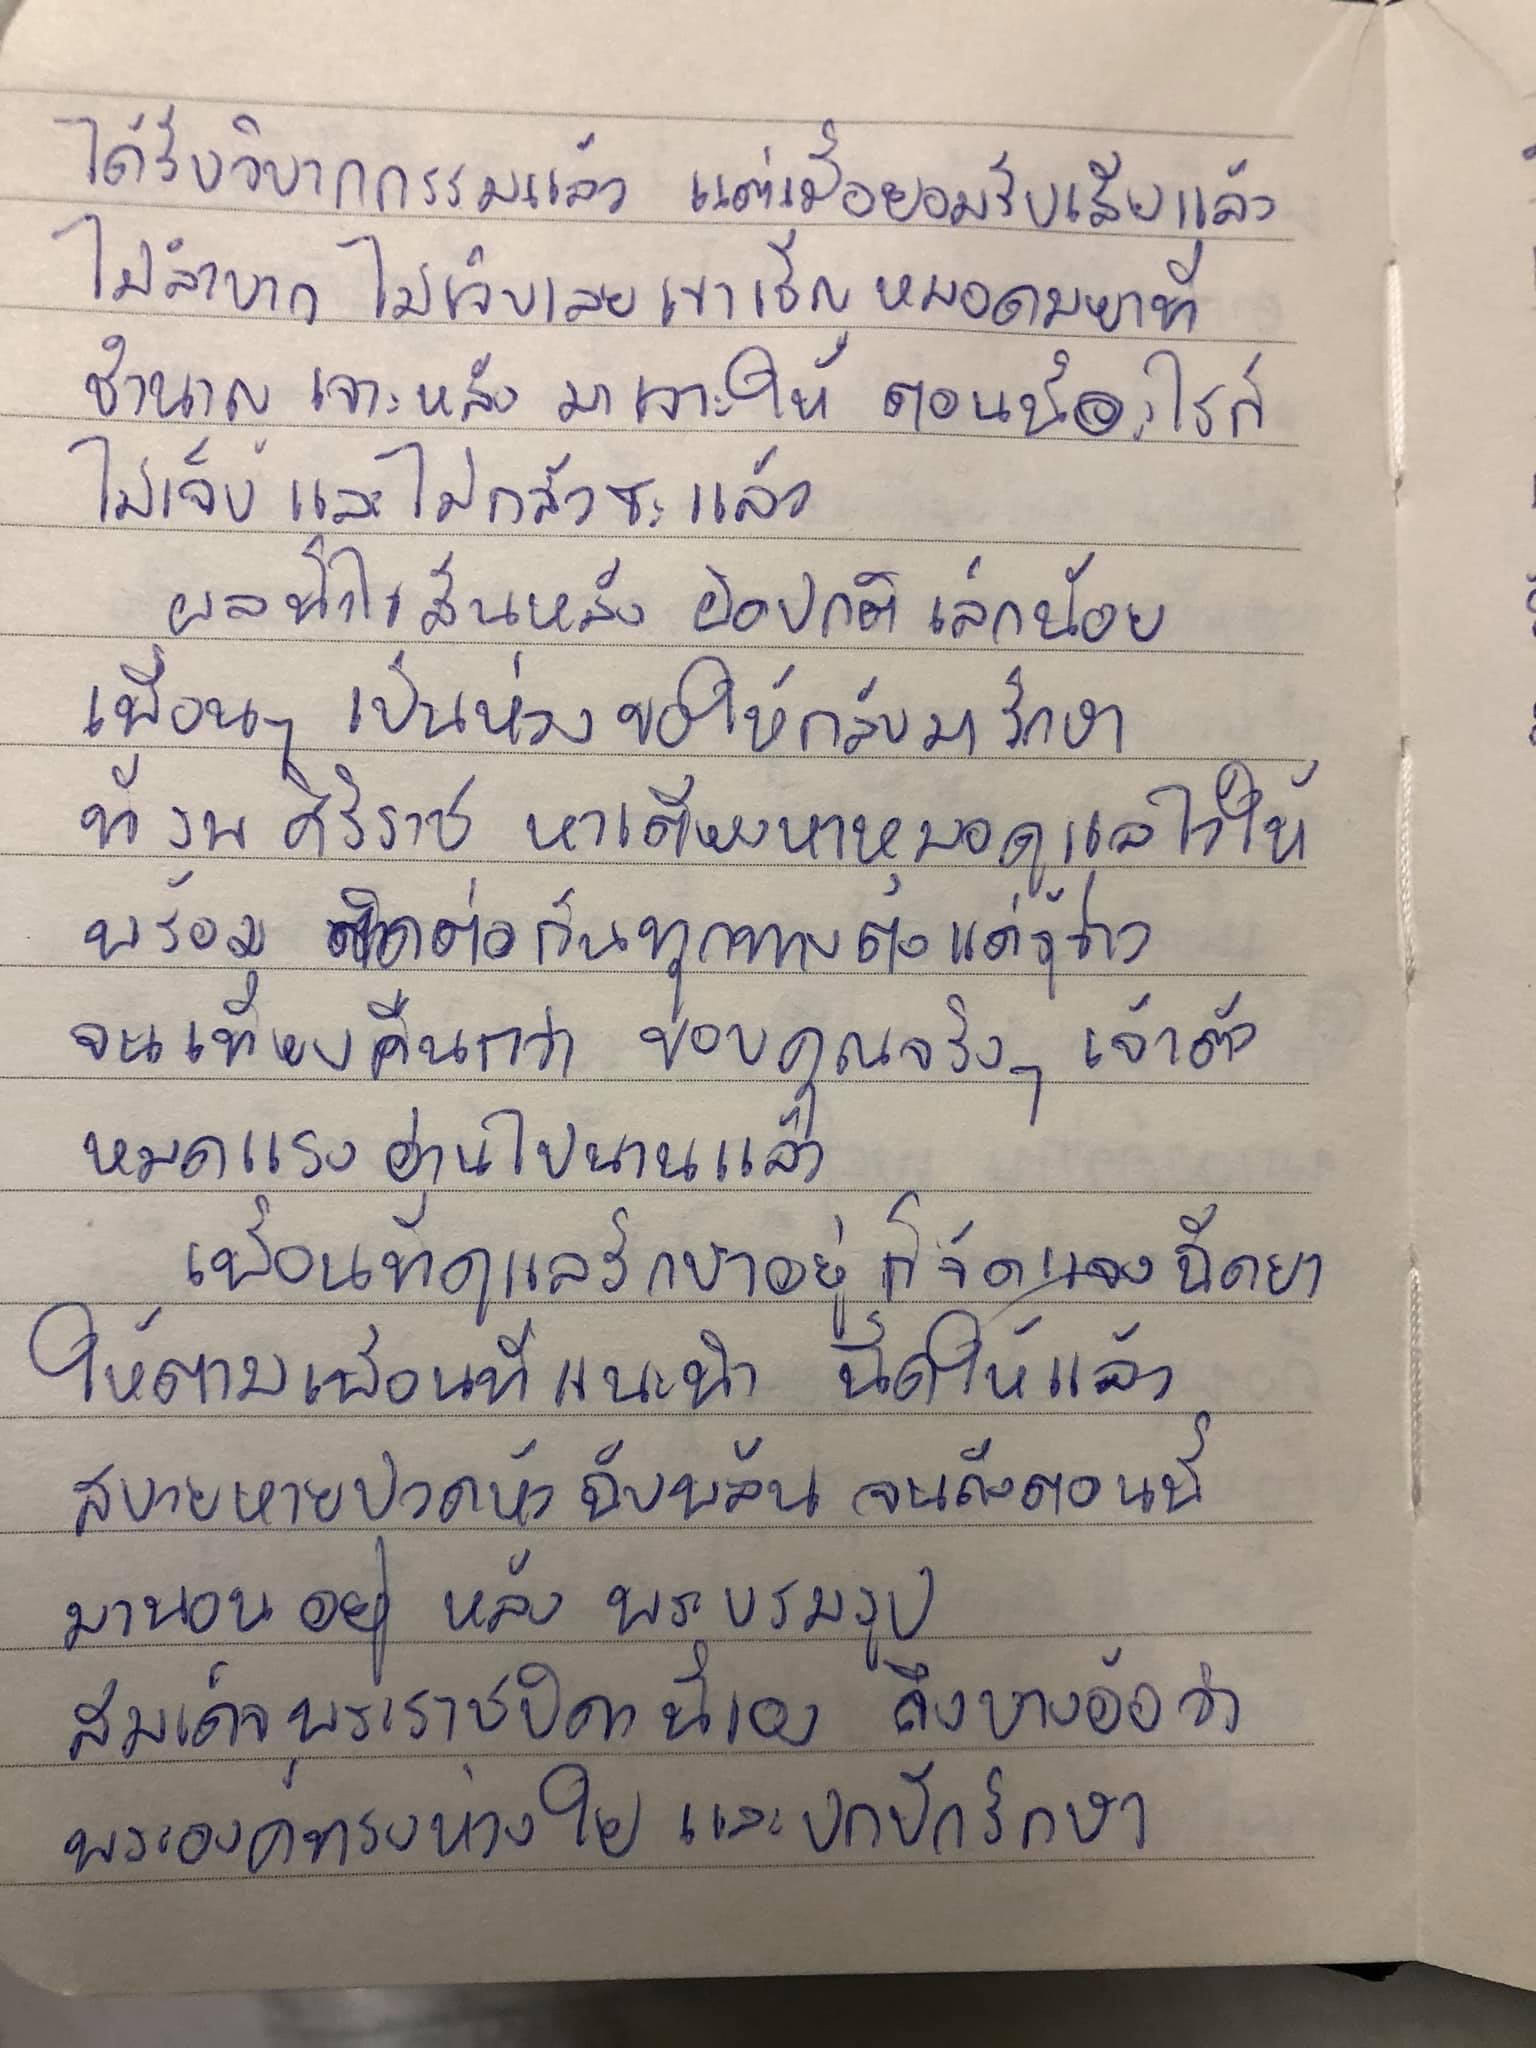 ได้รับวิบากกรรมแล้ว แต่เมื่อยอมรับเสียแล้ว
ไม่ลำบาก ไม่เจ็บเลย เขาเชิญหมอดมยาที่
ชำนาญ เจาะหลัง มาเจาะให้ ตอนนี้อะไรก็
ไม่เจ็บ และไม่กลัวซะแล้ว
ผลน้ำไขสันหลัง ผิดปกติ เล็กน้อย
เพื่อนๆ เป็นห่วง ขอให้กลับมารักษา
ที่ รพ ศิริราช หาเตียงหาหมอดูแลไว้ให้
พร้อม ติดต่อกันทุกทางตั้งแต่รู้ข่าว
จนเที่ยงคืนกว่า ขอบคุณจริงๆ เจ้าตัว
หมดแรง อ่านไปนานแล้ว
เพื่อนที่ดูแลรักษาอยู่ ก็จัดแจงฉีดยา
ให้ตามเพื่อนที่แนะนำ ฉีดให้แล้ว
สบายหายปวดหัว ฉับพลัน จนถึงตอนนี้
มานอนอยู่ หลัง พระบรมรูป
สมเด็จพระราชบิดา นี่เอง ถึงบางอ้อว่า
พระองค์ทรงห่วงใย และปกปักรักษา